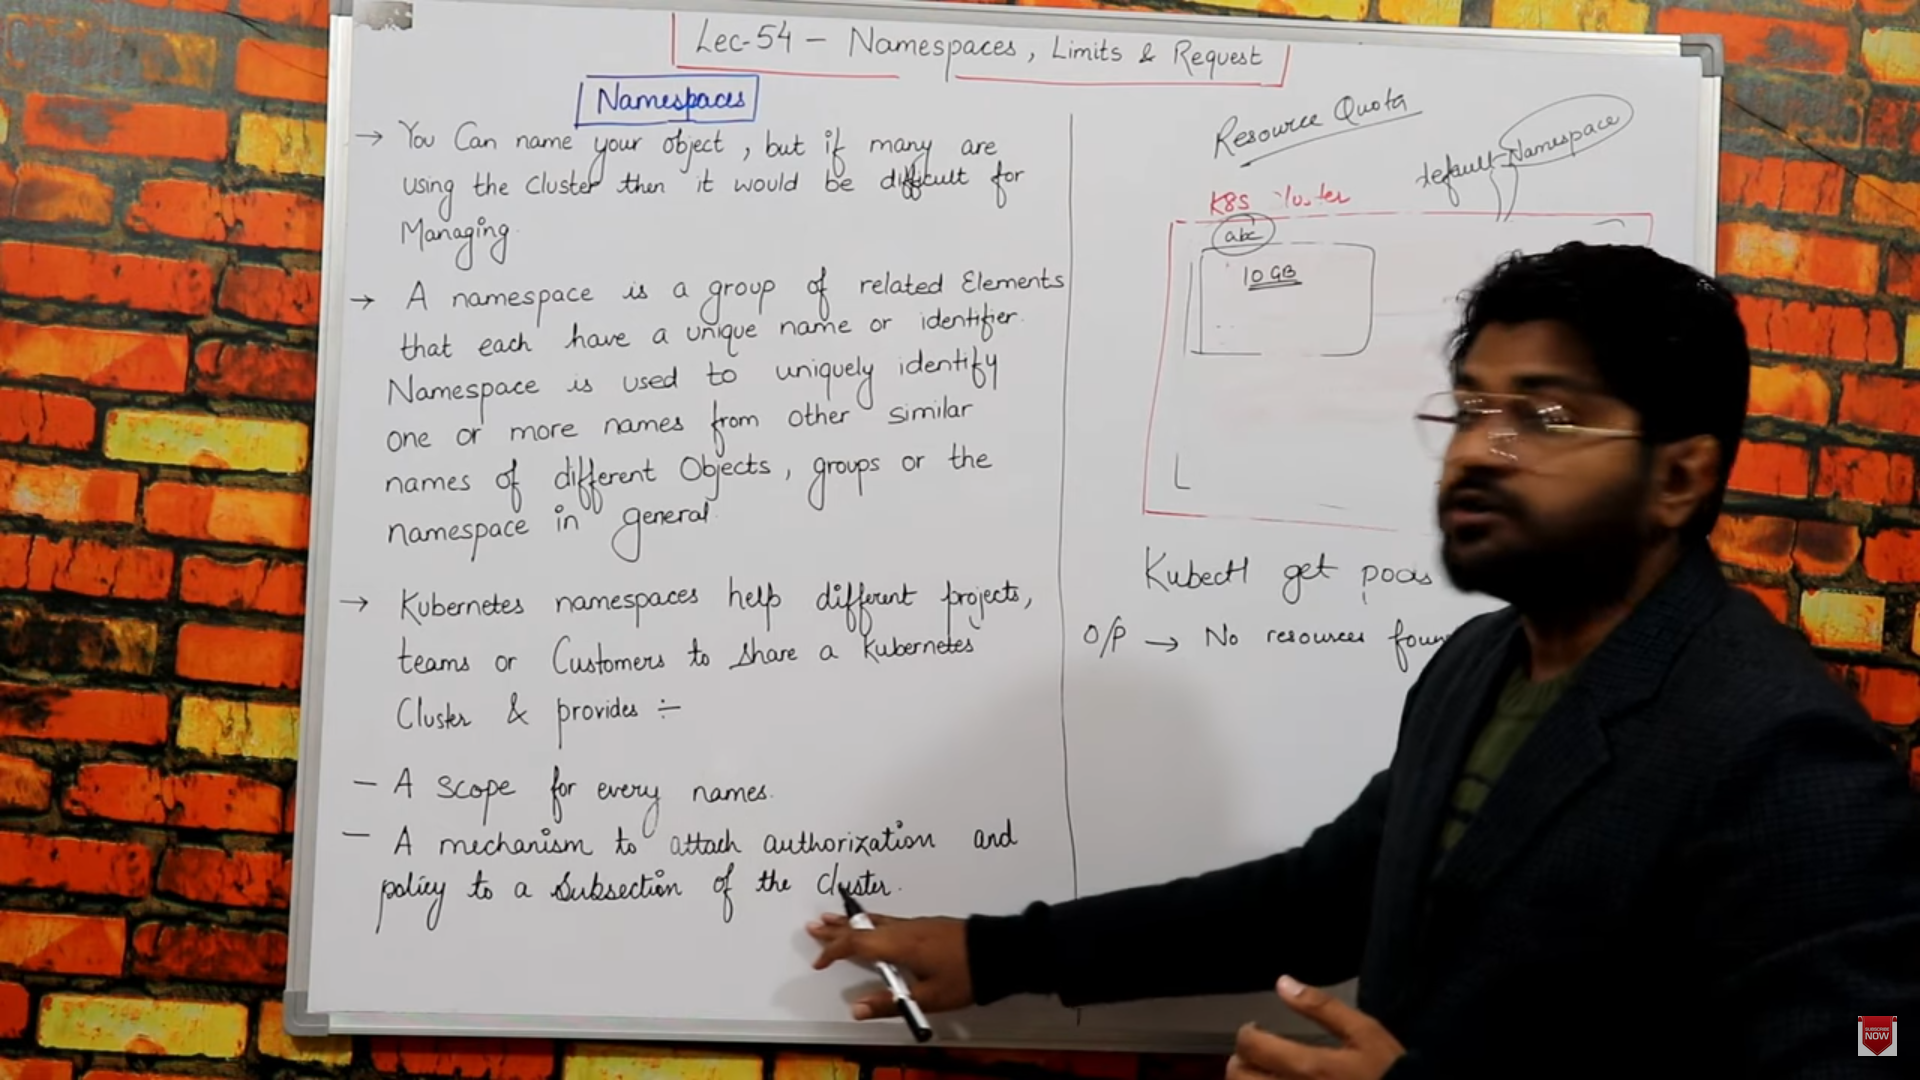 Lec-54 - Namespaces, Limits & Request
Namespaces
→ You Can name your object, but if many are
using the cluster then it would be difficult for
Managing.
→ A namespace is a group of related Elements
that each have a unique name or identifier.
Namespace is used to uniquely identify
one or more names from other similar
names of different Objects, groups or the
namespace in general.
→ Kubernetes namespaces help different projects,
teams or Customers to share a Kubernetes
Cluster & provides ÷
- A scope for every names.
- A mechanism to attach authorization and
policy to a Subsection of the Cluster.
Resource Quota
default-Namespace
K8s cluster
abc
10 GB
Kubectl get pods
O/P → No resources
SUBSCRIBE
NOW